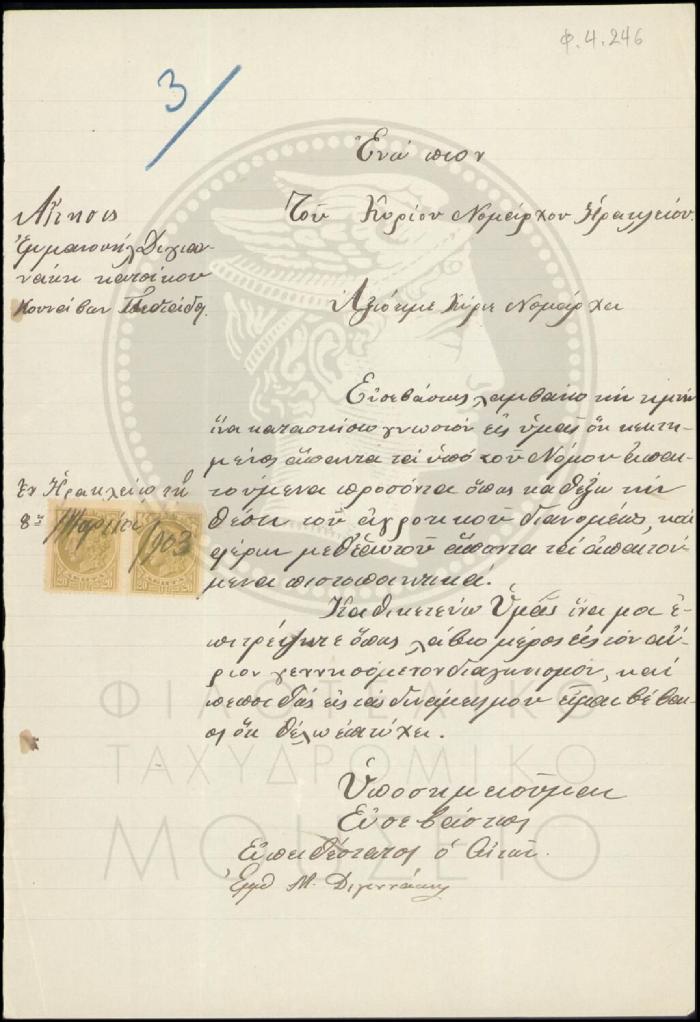 Φ.4.246
3
Ἐνώπιον
Τοῦ Κυρίου Νομάρχου Ἡρακλείου.
Αἴτησις
Ἐμμανουὴλ Διγια-
νάκη κατοίκου
Κουνάβων Πεδιάδος.
Ἀξιότιμε Κύριε Νομάρχα
Εὐσεβάστως λαμβάνω τὴν τιμὴν
ἵνα καταστήσω γνωστὸν εἰς ὑμᾶς ὅτι κεκτη-
μένος ἅπαντα τὰ ὑπὸ τοῦ Νόμου ἀπαι-
τούμενα προσόντα ὅπως καθέξω τὴν
θέσιν τοῦ ἀγροτικοῦ διανομέως, καὶ
φέρων μεθ' ἑαυτοῦ ἅπαντα τὰ ἀπαιτού-
μενα πιστοποιητικά.
Καθικετεύω Ὑμᾶς ἵνα μοι ἐ-
πιτρέψητε ὅπως λάβω μέρος εἰς τὸν αὔ-
ριον γεννησόμενον διαγωνισμόν, καὶ
πεποιθὼς εἰς τὰς δυνάμεις μου εἶμαι βέβαι-
ος ὅτι θέλω ἐπιτύχει.
Ἐν Ἡρακλείῳ τῇ
8ῃ Μαρτίου 1903
20 ΛΕΠΤΑ 20
20 ΛΕΠΤΑ 20
Ὑποσημειοῦμαι
Εὐσεβάστως
Εὐπειθέστατος ὁ Αἰτῶν.
Ἐμμ Μ. Διγιαννάκης
ΦΙΛΟΤΕΛΙΚΟ
ΤΑΧΥΔΡΟΜΙΚΟ
ΜΟΥΣΕΙΟ